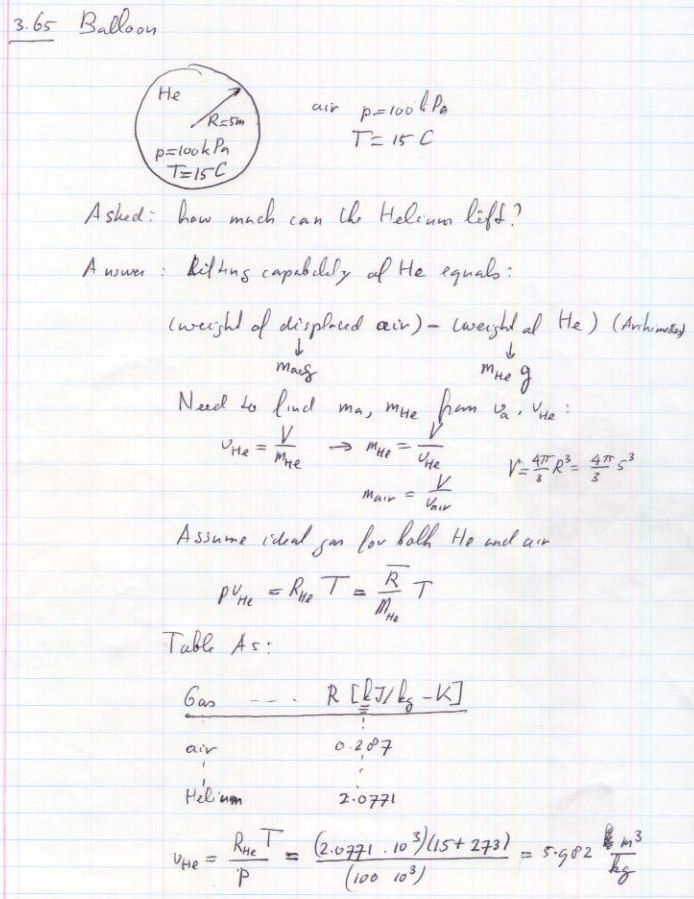 3.65 Balloon
He
R=5m
p=100kPa
T=15C
air p=100kPa
T=15C
Asked: how much can the Helium lift?
Answer: Lifting capability of He equals:
(weight of displaced air) - (weight of He) (Archimedes)
↓ ↓
mag mHe g
Need to find ma, mHe from va, vHe:
vHe = V/mHe → mHe = V/vHe
V = 4π/3 R³ = 4π/3 5³
mair = V/vair
Assume ideal gas for both He and air
pvHe = RHe T = R̅/MHe T
Table A5:
Gas .... R [kJ/kg-K]
air 0.287
Helium 2.0771
vHe = RHe T/p = (2.0771 . 10³)(15+273)/(100 10³) = 5.982 m³/kg